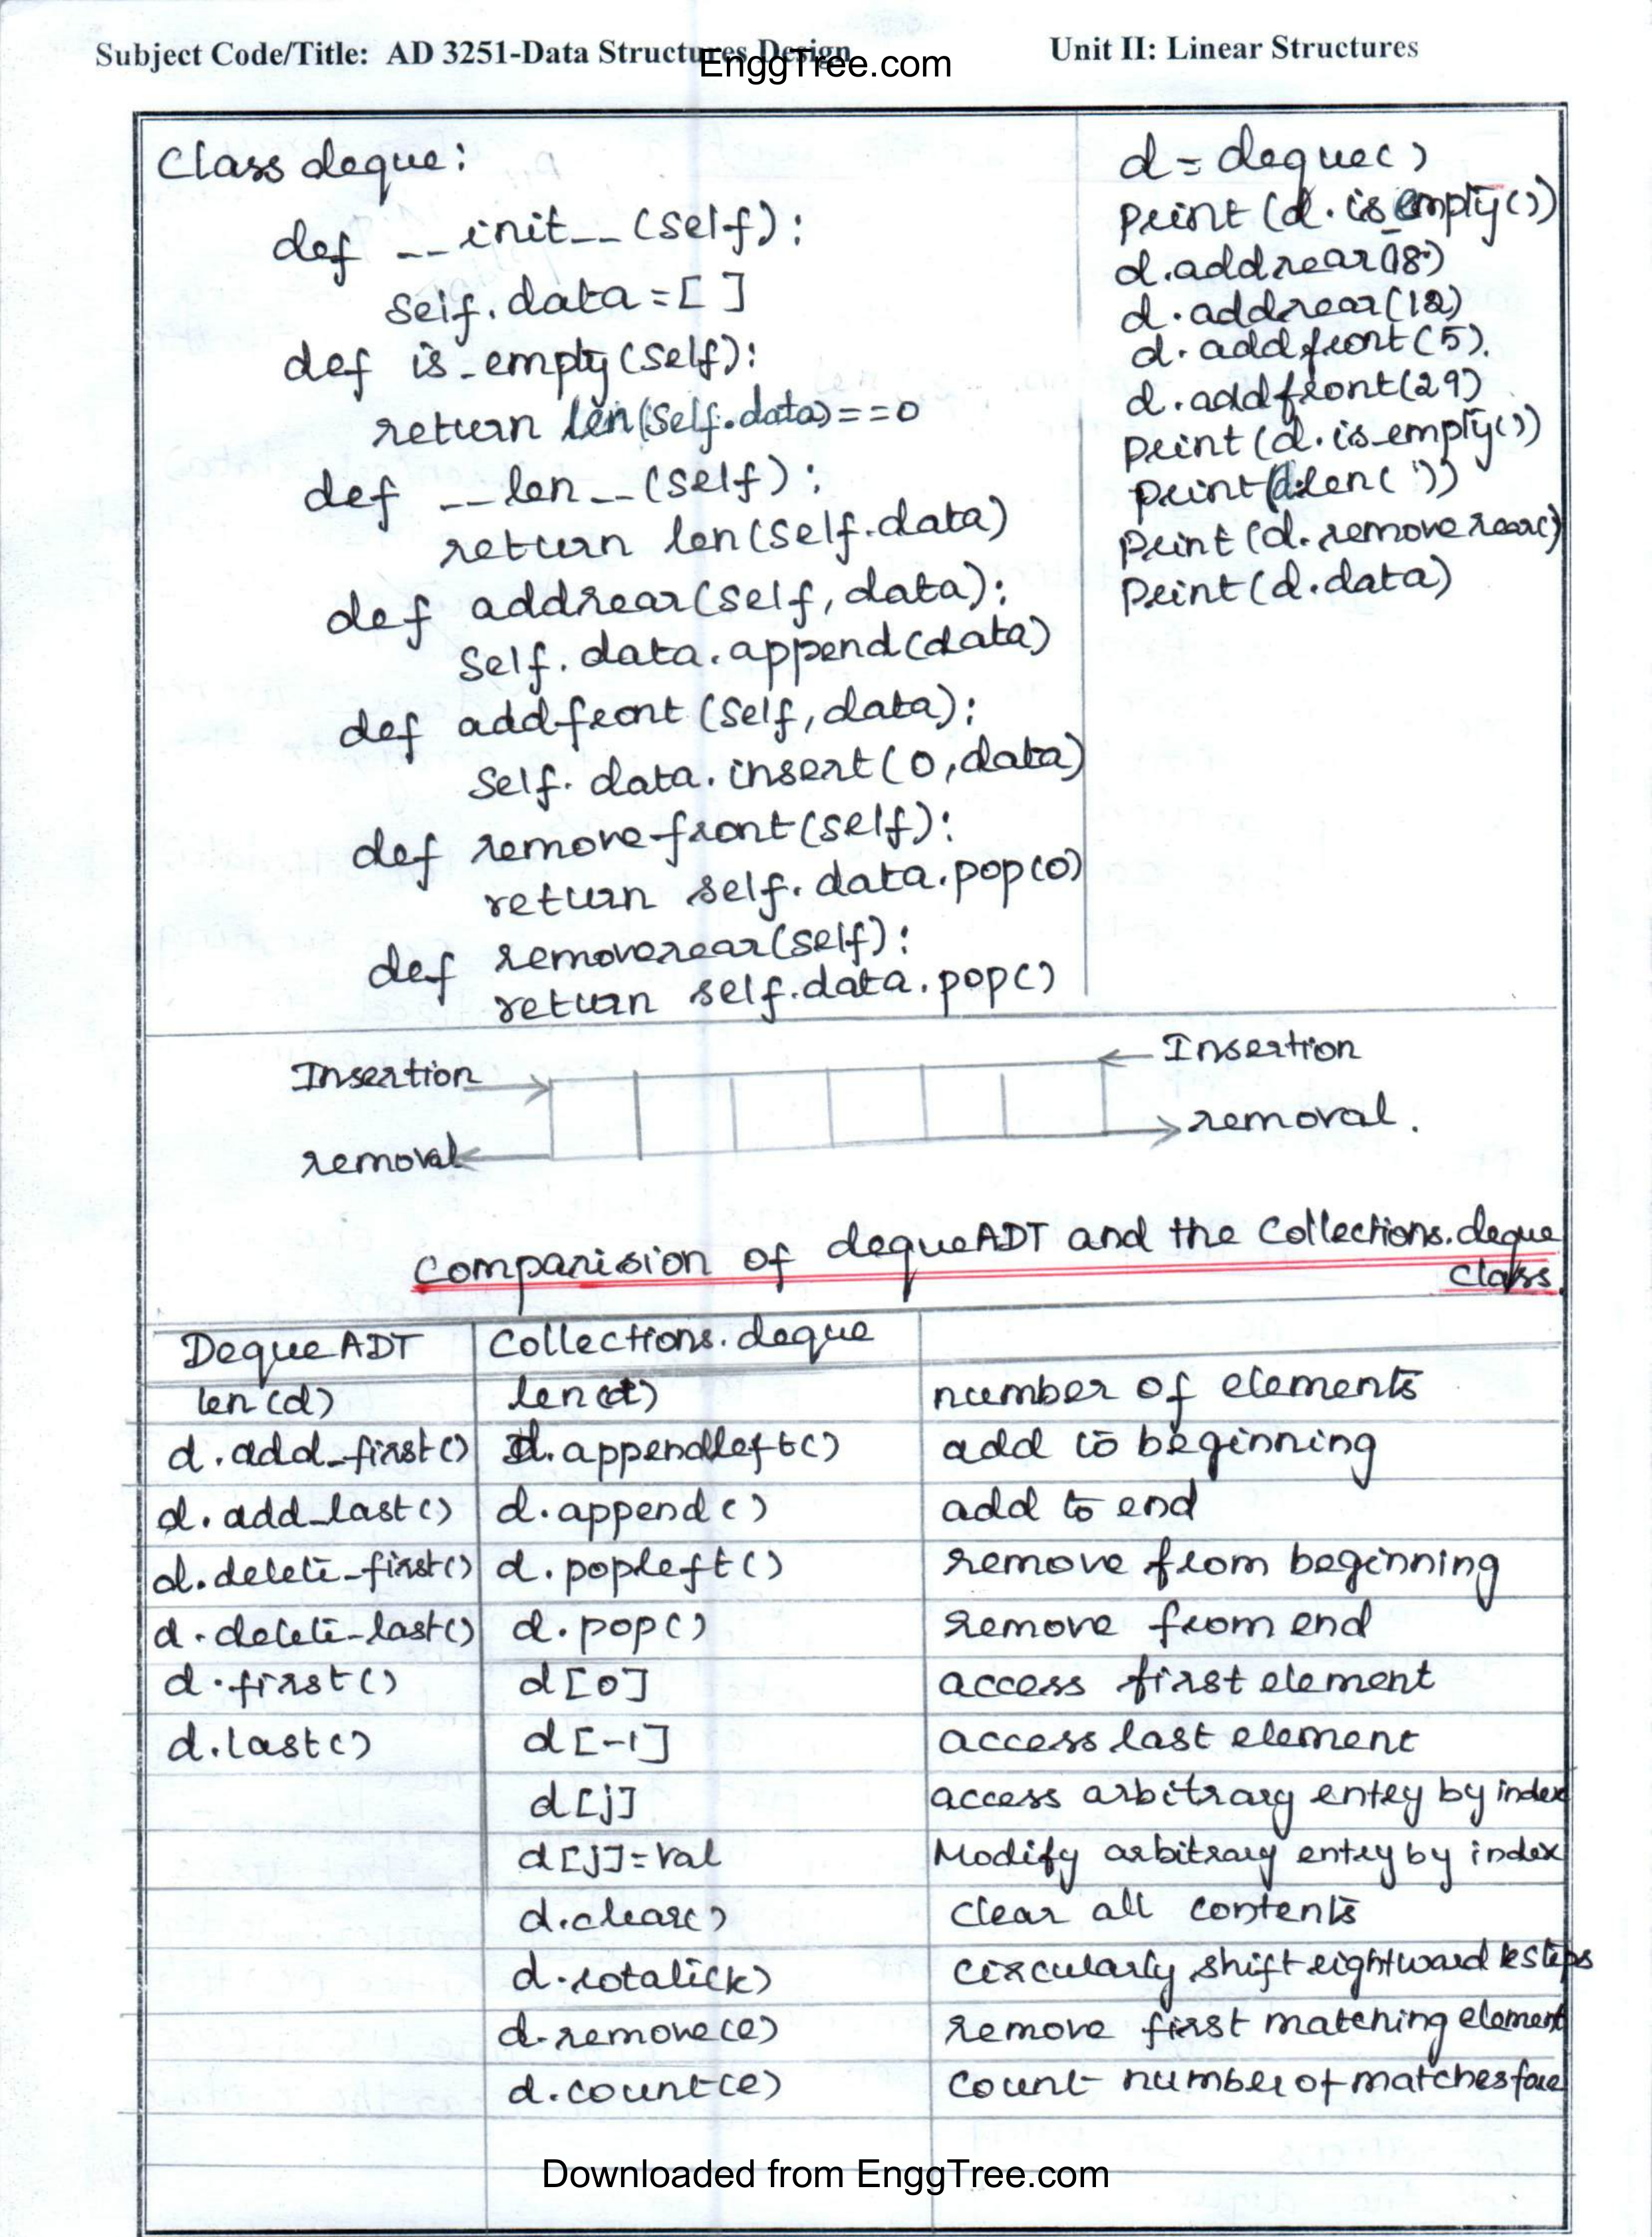 Subject Code/Title: AD 3251-Data Structures Design
EnggTree.com
Unit II: Linear Structures
Class deque:
def __init__(self):
self.data=[ ]
def is_empty(self):
return len(self.data)==0
def __len__(self):
return len(self.data)
def addrear(self, data):
self.data.append(data)
def addfront(self, data):
self.data.insert(0, data)
def removefront(self):
return self.data.pop(0)
def removerear(self):
return self.data.pop()
d = deque()
print(d.is_empty())
d.addrear(18)
d.addrear(12)
d.addfront(5).
d.addfront(29)
print(d.is_empty())
print(d.len())
print(d.removerear()
Print(d.data)
Insertion
Insertion
removal
removal.
Comparision of dequeADT and the Collections.deque
class.
Deque ADT Collections.deque
len(d) len(d) number of elements
d.add_first() d.appendleft() add to beginning
d.add_last() d.append() add to end
d.delete_first() d.popleft() remove from beginning
d.delete_last() d.pop() remove from end
d.first() d[0] access first element
d.last() d[-1] access last element
d[j] access arbitrary entry by index
d[j]=val Modify arbitrary entry by index
d.clear() clear all contents
d.rotate(k) circularly shift rightward k steps
d.remove(e) remove first matching element
d.count(e) count number of matches for e
Downloaded from EnggTree.com